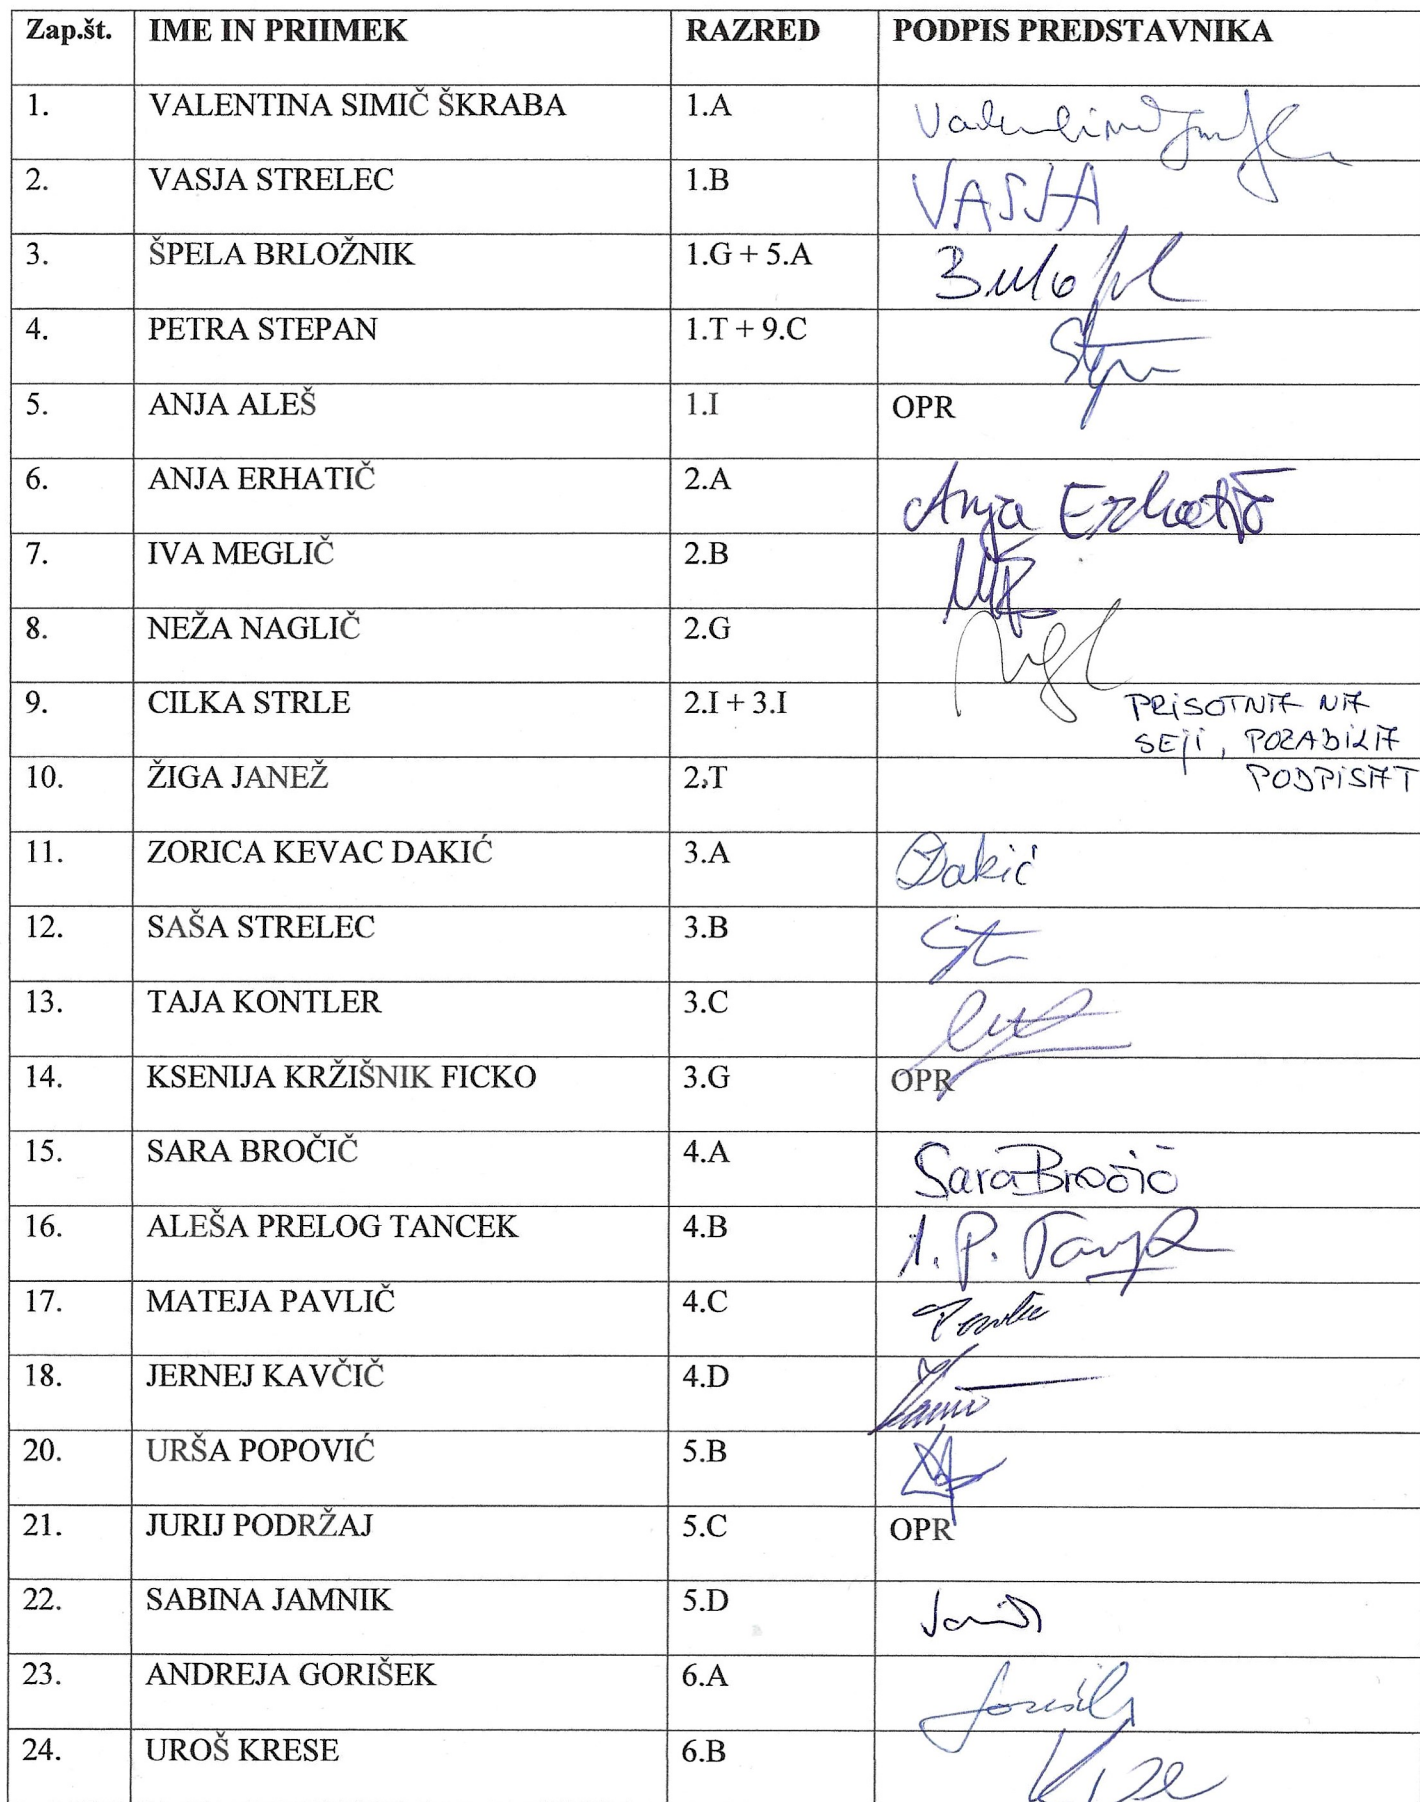 Zap.št. IME IN PRIIMEK RAZRED PODPIS PREDSTAVNIKA
1. VALENTINA SIMIČ ŠKRABA 1.A
2. VASJA STRELEC 1.B VASJA
3. ŠPELA BRLOŽNIK 1.G + 5.A
4. PETRA STEPAN 1.T + 9.C
5. ANJA ALEŠ 1.I OPR
6. ANJA ERHATIČ 2.A Anja Erhatič
7. IVA MEGLIČ 2.B
8. NEŽA NAGLIČ 2.G
9. CILKA STRLE 2.I + 3.I PRISOTNA NA
SEJI, POZABILA
10. ŽIGA JANEŽ 2.T PODPISAT
11. ZORICA KEVAC DAKIĆ 3.A Dakić
12. SAŠA STRELEC 3.B
13. TAJA KONTLER 3.C
14. KSENIJA KRŽIŠNIK FICKO 3.G OPR
15. SARA BROČIČ 4.A Sara Bročič
16. ALEŠA PRELOG TANCEK 4.B
17. MATEJA PAVLIČ 4.C
18. JERNEJ KAVČIČ 4.D
20. URŠA POPOVIĆ 5.B
21. JURIJ PODRŽAJ 5.C OPR
22. SABINA JAMNIK 5.D
23. ANDREJA GORIŠEK 6.A
24. UROŠ KRESE 6.B